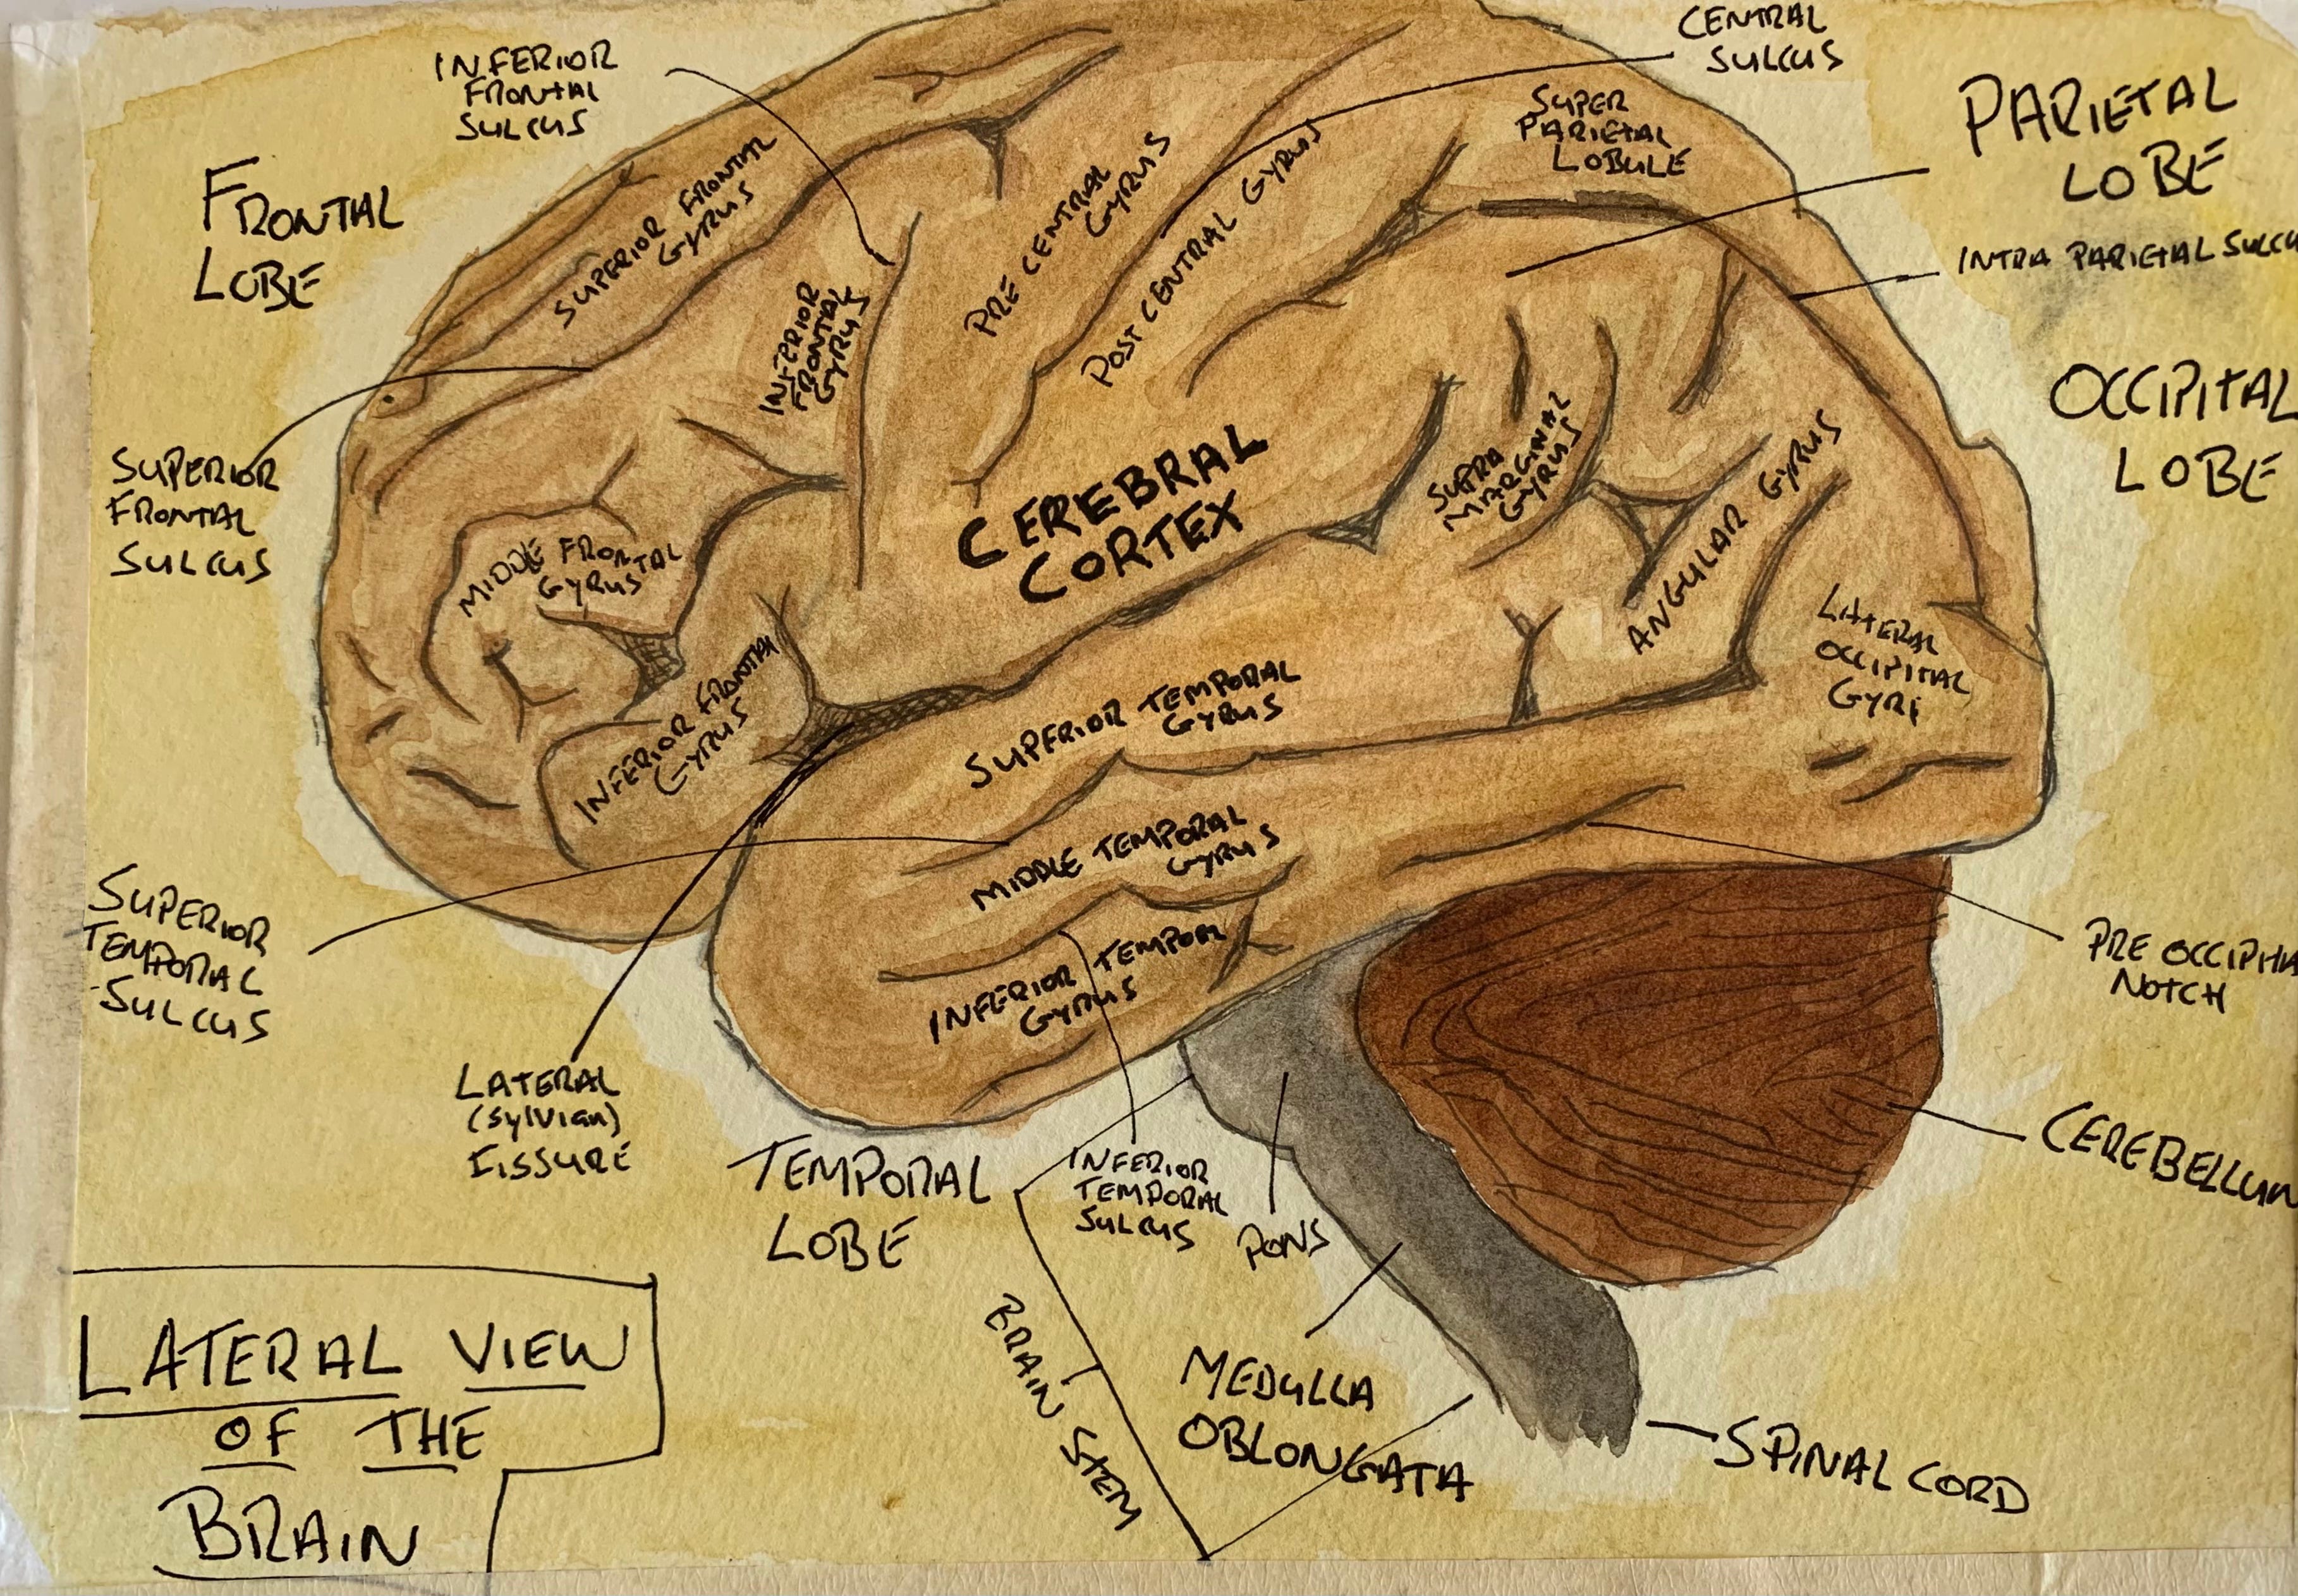 INFERIOR
FRONTAL
SULCUS
CENTRAL
SULCUS
FRONTAL
LOBE
SUPERIOR FRONTAL
GYRUS
PRE CENTRAL
GYRUS
POST CENTRAL GYRUS
SUPER
PARIETAL
LOBULE
PARIETAL
LOBE
INTRA PARIETAL SULCU
OCCIPITAL
LOBE
INFERIOR
FRONTAL
GYRUS
SUPERIOR
FRONTAL
SULCUS
CEREBRAL
CORTEX
SUPRA
MARGINAL
GYRUS
ANGULAR GYRUS
MIDDLE FRONTAL
GYRUS
LATERAL
OCCIPITAL
GYRI
INFERIOR FRONTAL
GYRUS
SUPERIOR TEMPORAL
GYRUS
MIDDLE TEMPORAL
GYRUS
INFERIOR TEMPORL
GYRUS
SUPERIOR
TEMPORAL
SULCUS
PRE OCCIPITA
NOTCH
LATERAL
(Sylvian)
FISSURE
TEMPORAL
LOBE
INFERIOR
TEMPORAL
SULCUS
PONS
CEREBELLUM
BRAIN STEM
MEDULLA
OBLONGATA
SPINAL CORD
LATERAL VIEW
OF THE
BRAIN